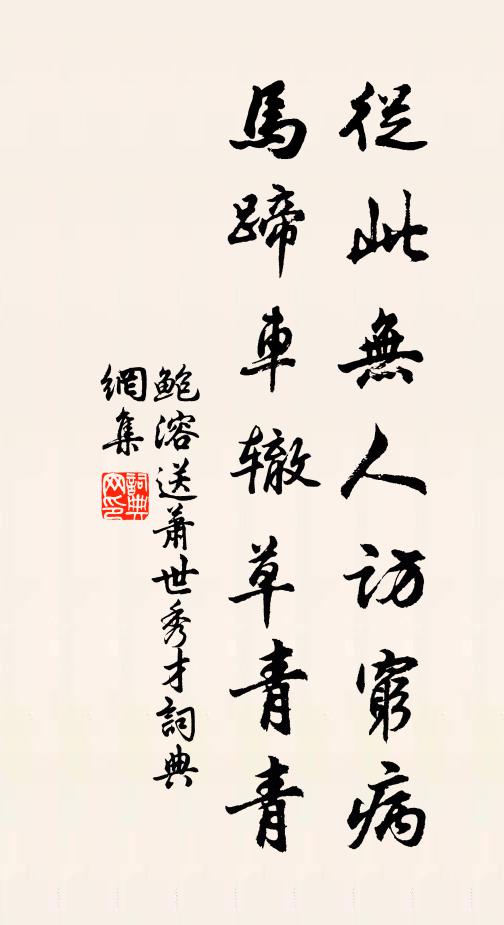 從此無人訪窮病
馬蹄車辙草青青
鮑溶送萧世秀才詞典
網集
詞典
网印